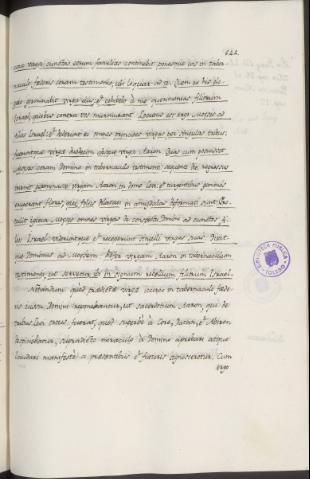 una virga cunctas eorum familias continebit ponesque eas in taber
naculo foederis coram testimonio, ubi loquar ad te. Quem ex his ele
gero germinabit virga eius, et cohibebo a me querimonias filiorum
Israel, quibus contra vos murmurant. Locutus est ergo Moyses ad
filios Israel, et dederunt ei omnes principes virgas per singulas tribus,
fueruntque virgae duodecim absque virga Aaron. Quas cum posuisset
Moyses coram Domino in tabernaculo testimonii sequenti die regressus
invenit germinasse virgam Aaron in domo Levi, et turgentibus gemmis
eruperant flores, qui foliis dilatatis in amigdalas deformati sunt. Pro
tulit igitur Moyses omnes virgas de conspectu Domini ad cunctos fi
lios Israel, videruntque et receperunt singuli virgas suas. Dixit
que Dominus ad Moysem: Refer virgam Aaron in tabernaculum
testimonii, ut servetur ibi in signum rebellium filiorum Israel.
Notandum quod praedictae virgae in tabernaculo foede
ris coram Domino reponebantur, ut sacerdotium Aaron, qui de
tribu Levi erat, quod superbe a Core, Datan, et Abiron
supradicto miraculo a Domino aprobari atque
manifeste a praesentibus et futuris agnosceretur. Cum
ergo
BIBLIOTECA PUBLICA
TOLEDO